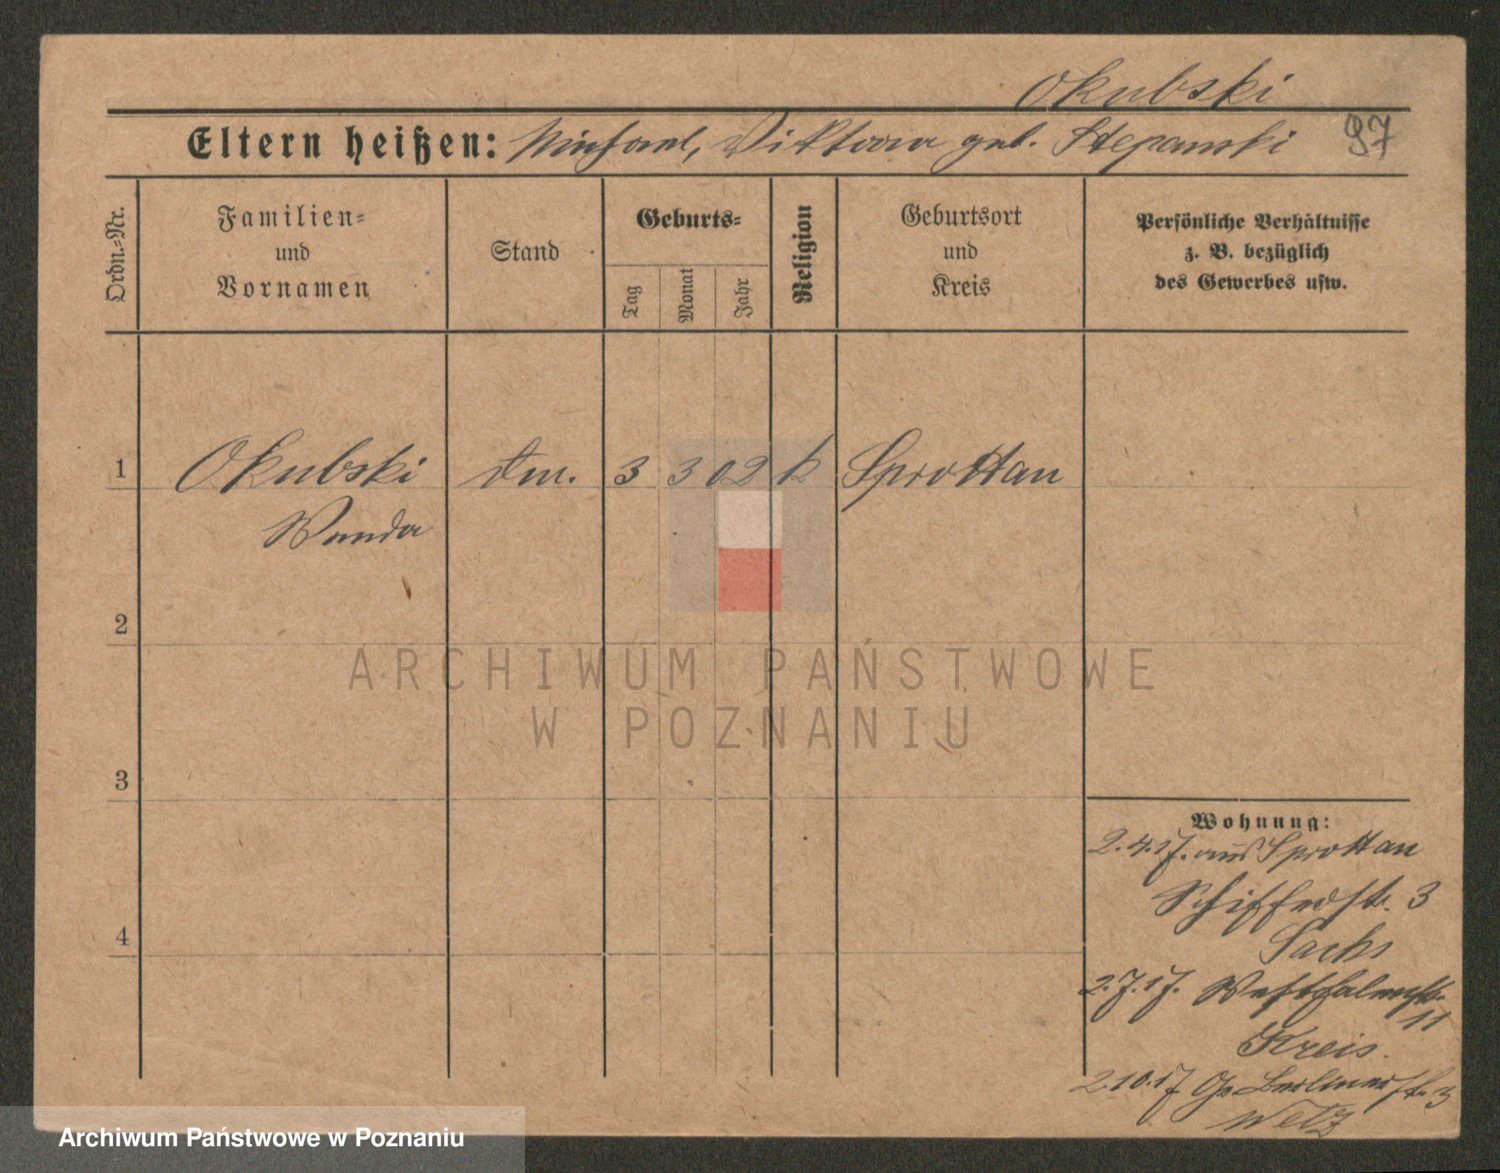 Okubski
Eltern heißen: Michael, Viktoria geb. Stepanski 97
Ordn.-Nr.
Familien-
und
Vornamen
Stand
Geburts-
Tag
Monat
Jahr
Religion
Geburtsort
und
Kreis
Persönliche Verhältnisse
z. B. bezüglich
des Gewerbes usw.
1 Okubski 3 3 02 k Sprottau
Wanda
2
ARCHIWUM PAŃSTWOWE
W POZNANIU
3
4
Wohnung:
2.4.17. aus Sprottau
Schifferstr. 3
Sachs
2.7.17. Westfalenstr.
11
Kreis.
2.10.17 Gr. Berlinerstr. 3
Welz
Archiwum Państwowe w Poznaniu